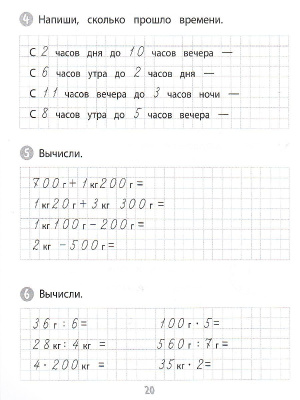 4 Напиши, сколько прошло времени.
С 2 часов дня до 10 часов вечера —
С 6 часов утра до 2 часов дня —
С 11 часов вечера до 3 часов ночи —
С 8 часов утра до 5 часов вечера —
5 Вычисли.
700 г + 1 кг 200 г =
1 кг 20 г + 3 кг 300 г =
1 кг 100 г – 200 г =
2 кг – 500 г =
6 Вычисли.
36 г : 6 = 100 г · 5 =
28 кг : 4 кг = 560 г : 7 г =
4 · 200 кг = 35 кг · 2 =
20